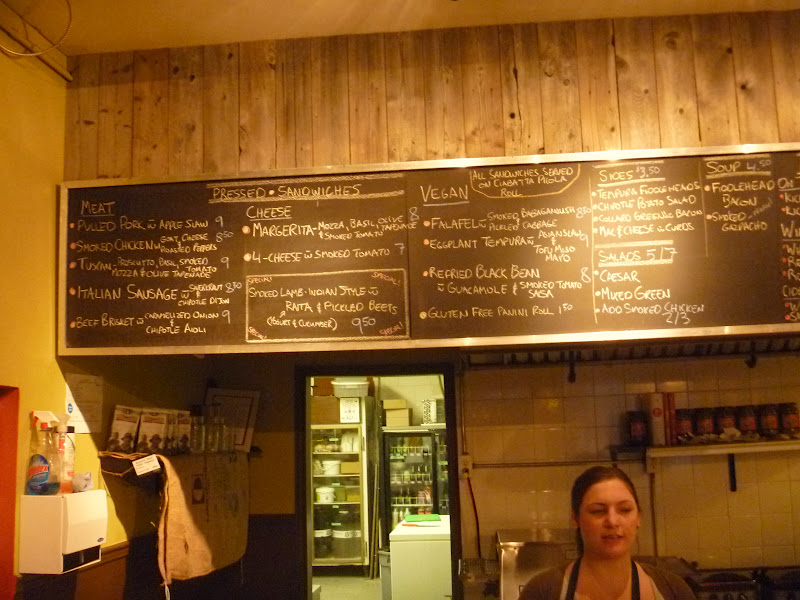 PRESSED • SANDWICHES
MEAT
• PULLED PORK w APPLE SLAW 9
• SMOKED CHICKEN w GOAT CHEESE & ROASTED PEPPERS 8.50
• TUSCAN - PROSCIUTTO, BASIL, SMOKED TOMATO
MOZZA & OLIVE TAPENADE 9
• ITALIAN SAUSAGE w SAUERKRAUT & CHIPOTLE DIJON 8.50
• BEEF BRISKET w CARAMELIZED ONION & CHIPOTLE AIOLI 9
CHEESE
• MARGERITA - MOZZA, BASIL, OLIVE TAPENADE
& SMOKED TOMATO 8
• 4-CHEESE w SMOKED TOMATO 7
SPECIAL! SPECIAL!
SMOKED LAMB - INDIAN STYLE w
RAITA & PICKLED BEETS
(YOGURT & CUCUMBER) 9.50
SPECIAL! SPECIAL!
VEGAN
ALL SANDWICHES SERVED
ON CIABATTA MIGLA
ROLL
• FALAFEL w SMOKED BABAGANOUSH
& PICKLED CABBAGE 8.50
• EGGPLANT TEMPURA w ASIAN SLAW &
TOFU MISO
MAYO 9
• REFRIED BLACK BEAN
w GUACAMOLE & SMOKED TOMATO
SALSA 8
• GLUTEN FREE PANINI ROLL 1.50
SIDES 3.50
• TEMPURA FIDDLEHEADS
• CHIPOTLE POTATO SALAD
• COLLARD GREENS w BACON
• MAC & CHEESE w CURDS
SALADS 5/7
• CAESAR
• MIXED GREEN
• ADD SMOKED CHICKEN
2/3
SOUP 4.50
• FIDDLEHEAD
BACON
• SMOKED
GAZPACHO